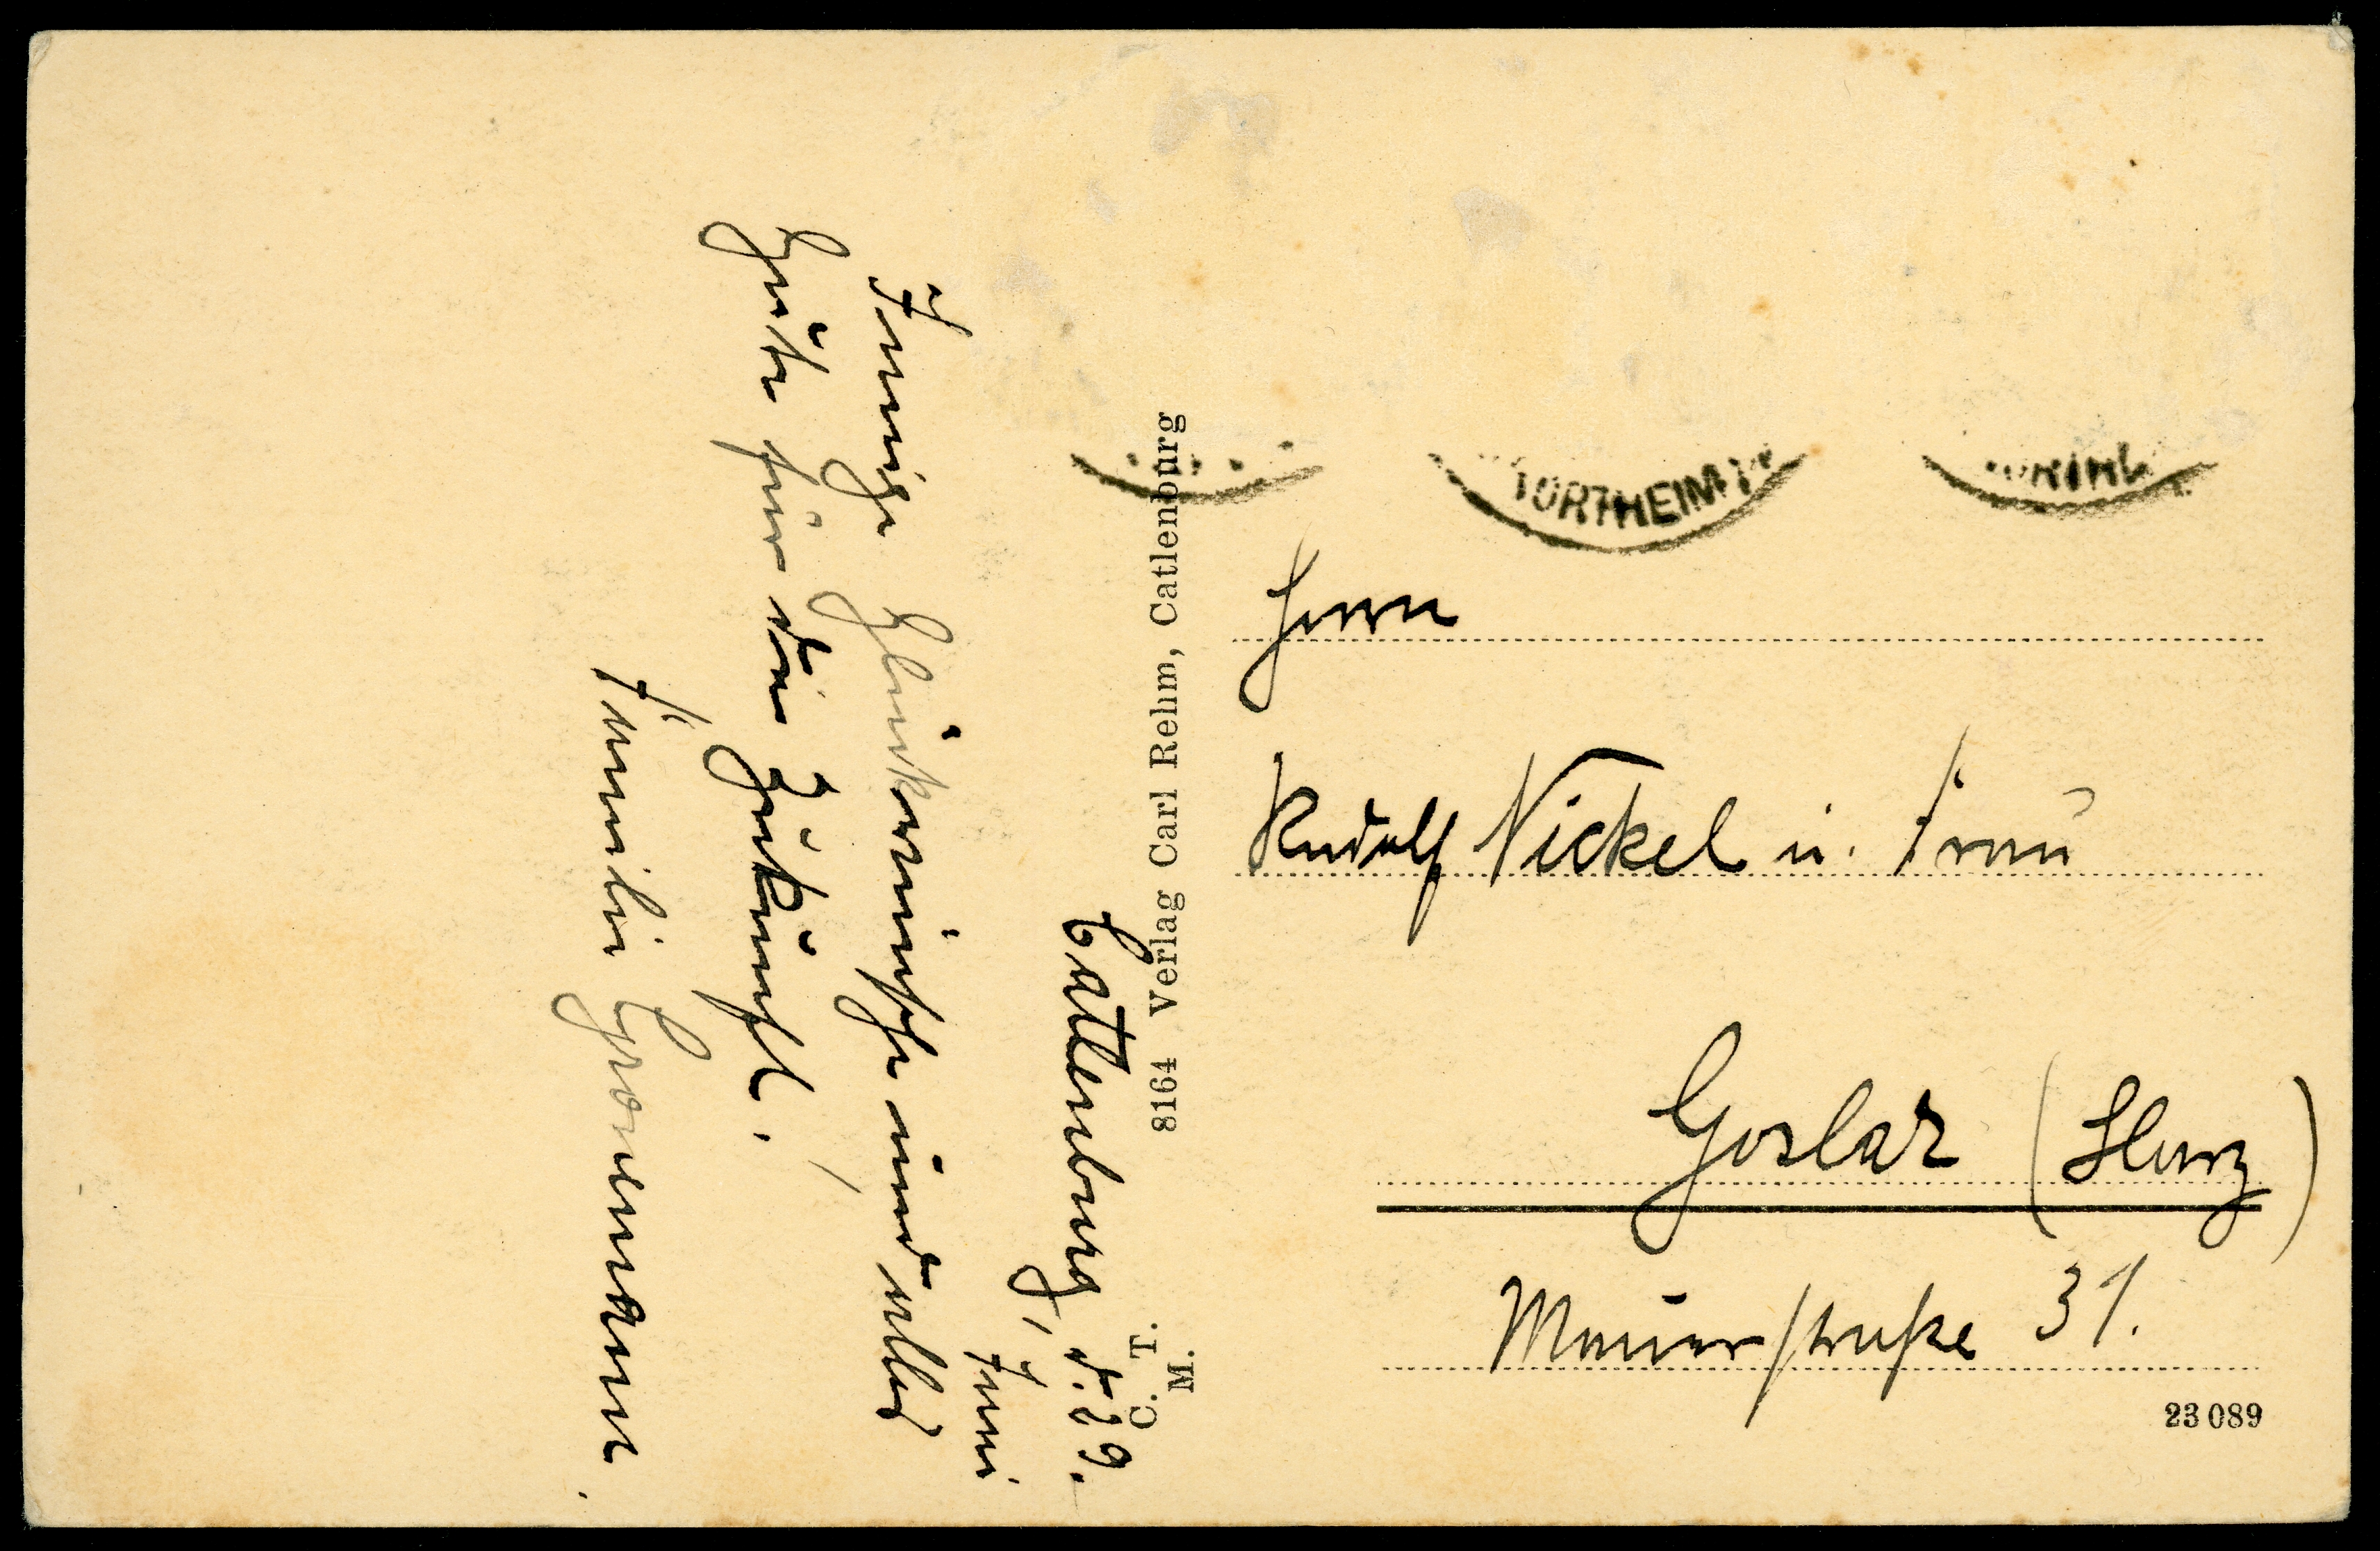 Catlenburg, d. 29.
Juni
Innige Glückwünsche und alles
Gute für die Zukunft.
Familie Gronemann.
8164 Verlag Carl Rehm, Catlenburg
C. T.
M.
NORTHEIM
Herrn
Rudolf Nickel u. Frau
Goslar (Harz)
Mauerstraße 31.
23 089